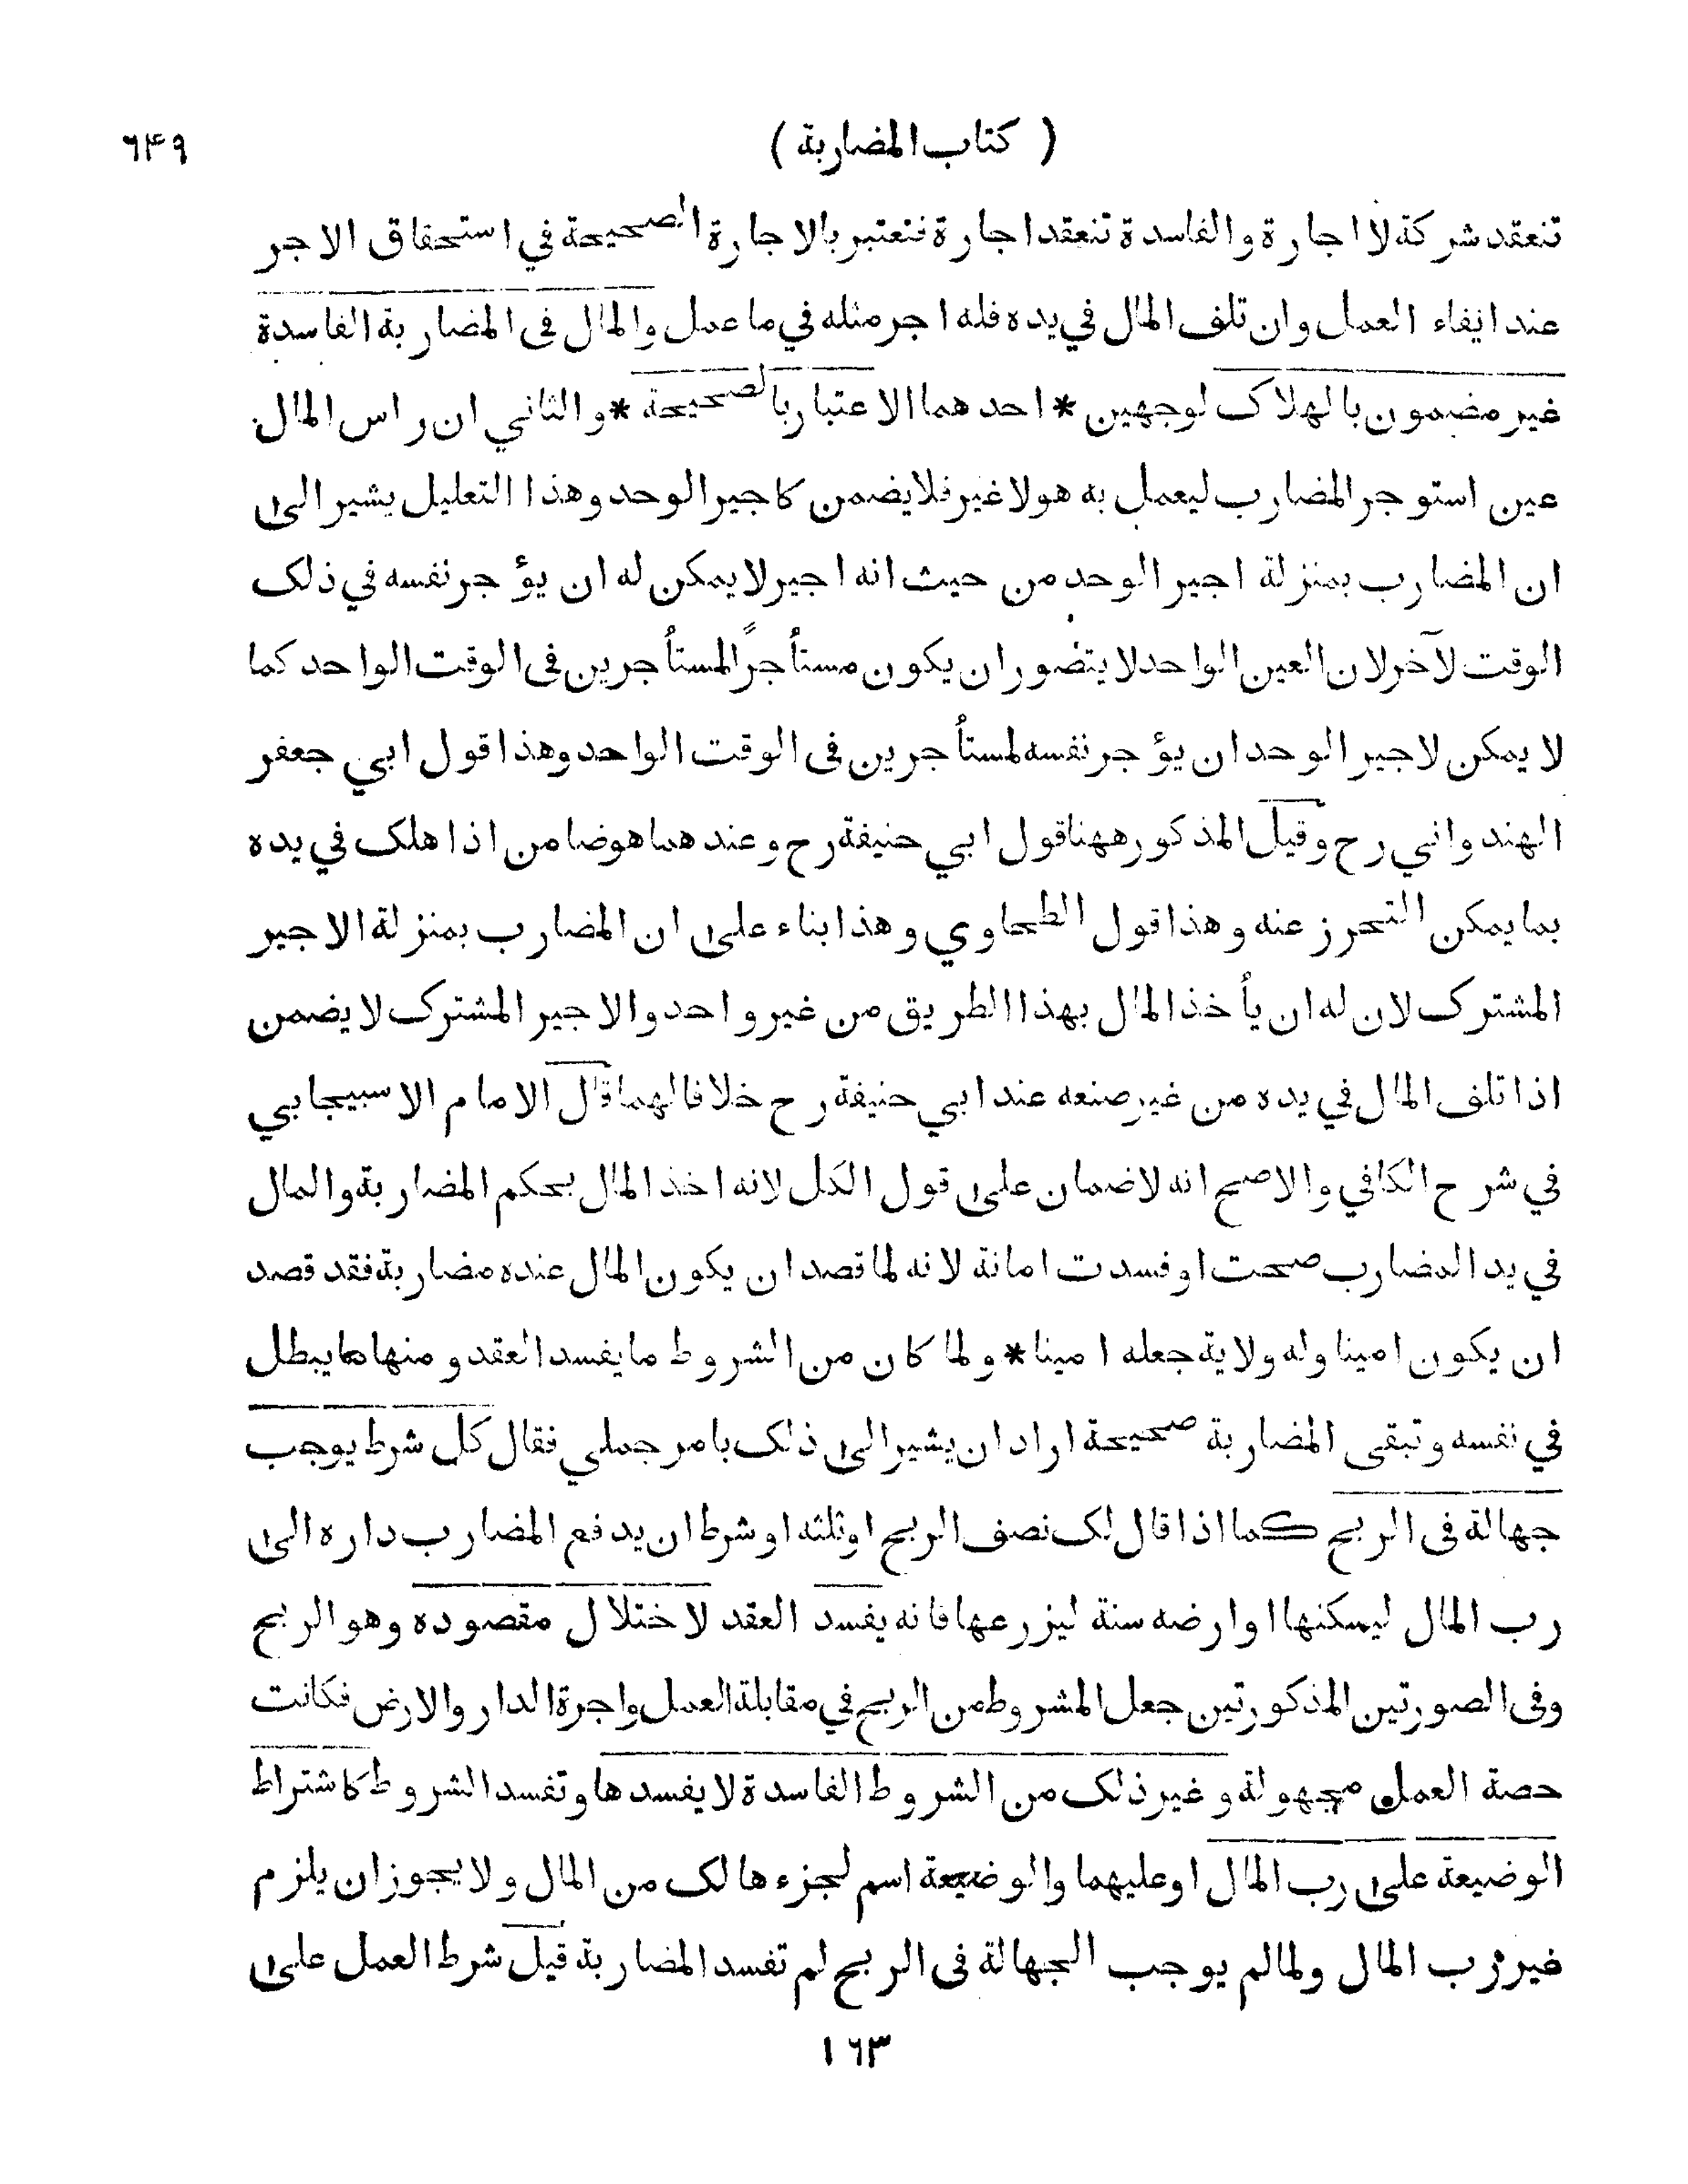 ( كتاب المضاربة ) ٦٤٩
تنعقد شركة لا اجارة والفاسدة تنعقد اجارة فتعتبر بالاجارة الصحيحة في استحقاق الاجر
عند ايفاء العمل وان تلف المال في يده فله اجر مثله في ما عمل والمال فى المضاربة الفاسدة
غير مضمون بالهلاك لوجهين * احدهما الاعتبار بالصحيحة * والثاني ان راس المال
عين استوجر المضارب ليعمل به هو لا غير فلا يضمن كاجير الوحد وهذا التعليل يشير الى
ان المضارب بمنزلة اجير الوحد من حيث انه اجير لا يمكن له ان يؤجر نفسه في ذلك
الوقت لآخر لان العين الواحد لا يتصور ان يكون مستأجرًا لمستأجرين فى الوقت الواحد كما
لا يمكن لاجير الوحد ان يؤجر نفسه لمستأجرين فى الوقت الواحد وهذا قول ابي جعفر
الهندواني رح وقيل المذكور ههنا قول ابي حنيفة رح وعندهما هو ضامن اذا هلك في يده
بما يمكن التحرز عنه وهذا قول الطحاوي وهذا بناء على ان المضارب بمنزلة الاجير
المشترك لان له ان يأخذ المال بهذا الطريق من غير واحد والاجير المشترك لا يضمن
اذا تلف المال في يده من غير صنعه عند ابي حنيفة رح خلافا لهما قال الامام الاسبيجابي
في شرح الكافي والاصح انه لا ضمان على قول الكل لانه اخذ المال بحكم المضاربة والمال
في يد المضارب صحت او فسدت امانة لانه لما قصد ان يكون المال عنده مضاربة فقد قصد
ان يكون امينا وله ولاية جعله امينا * ولما كان من الشروط ما يفسد العقد ومنها ما يبطل
في نفسه وتبقى المضاربة صحيحة اراد ان يشير الى ذلك بامر جملي فقال كل شرط يوجب
جهالة فى الربح كما اذا قال لك نصف الربح او ثلثه او شرط ان يدفع المضارب داره الى
رب المال ليسكنها او ارضه سنة ليزرعها فانه يفسد العقد لاختلال مقصوده وهو الربح
وفى الصورتين المذكورتين جعل المشروط من الربح في مقابلة العمل واجرة الدار والارض فكانت
حصة العمل مجهولة وغير ذلك من الشروط الفاسدة لا يفسدها وتفسد الشروط كاشتراط
الوضيعة على رب المال او عليهما والوضيعة اسم لجزء هالك من المال ولا يجوز ان يلزم
غير رب المال ولما لم يوجب الجهالة فى الربح لم تفسد المضاربة قيل شرط العمل على
١٦٣